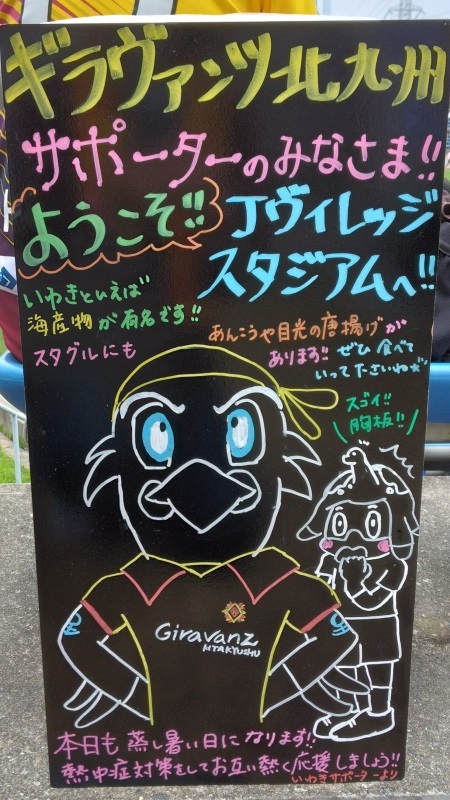 ギラヴァンツ北九州
サポーターのみなさま!!
ようこそ!!
Jヴィレッジ
スタジアムへ!!
いわきといえば
海産物が有名です!!
スタグルにも
あんこうや目光の唐揚げが
あります!! ぜひ食べて
いって下さいねだ
スゴイ!!
胸板!!
Giravanz
KITAKYUSHU
本日も蒸し暑い日になります!!
熱中症対策をしてお互い熱く応援しましょう!!
いわきサポーターより